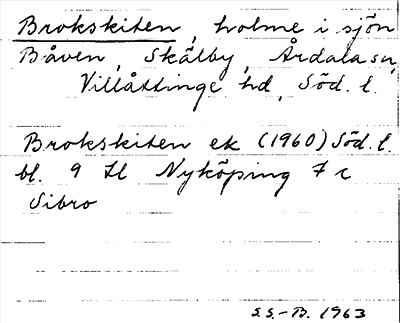 Brokskiten, holme i sjön
Båven, Skälby, Årdala sn,
Villåttinge hd, Söd. l.
Brokskiten ek (1960) Söd. l.
bl. 9 Nyköping 7 c
Sibro
S.S.-B. 1963